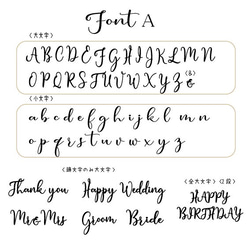 Font A
〈大文字〉
A B C D E F G H I J K L M N
O P Q R S T U V W X Y Z &
〈&〉
〈小文字〉
a b c d e f g h i j k l m n
o p q r s t u v w x y z
〈頭文字のみ大文字〉
Thank you Happy Wedding
Mr&Mrs Groom Bride
〈全大文字〉〈2段〉
HAPPY
BIRTHDAY